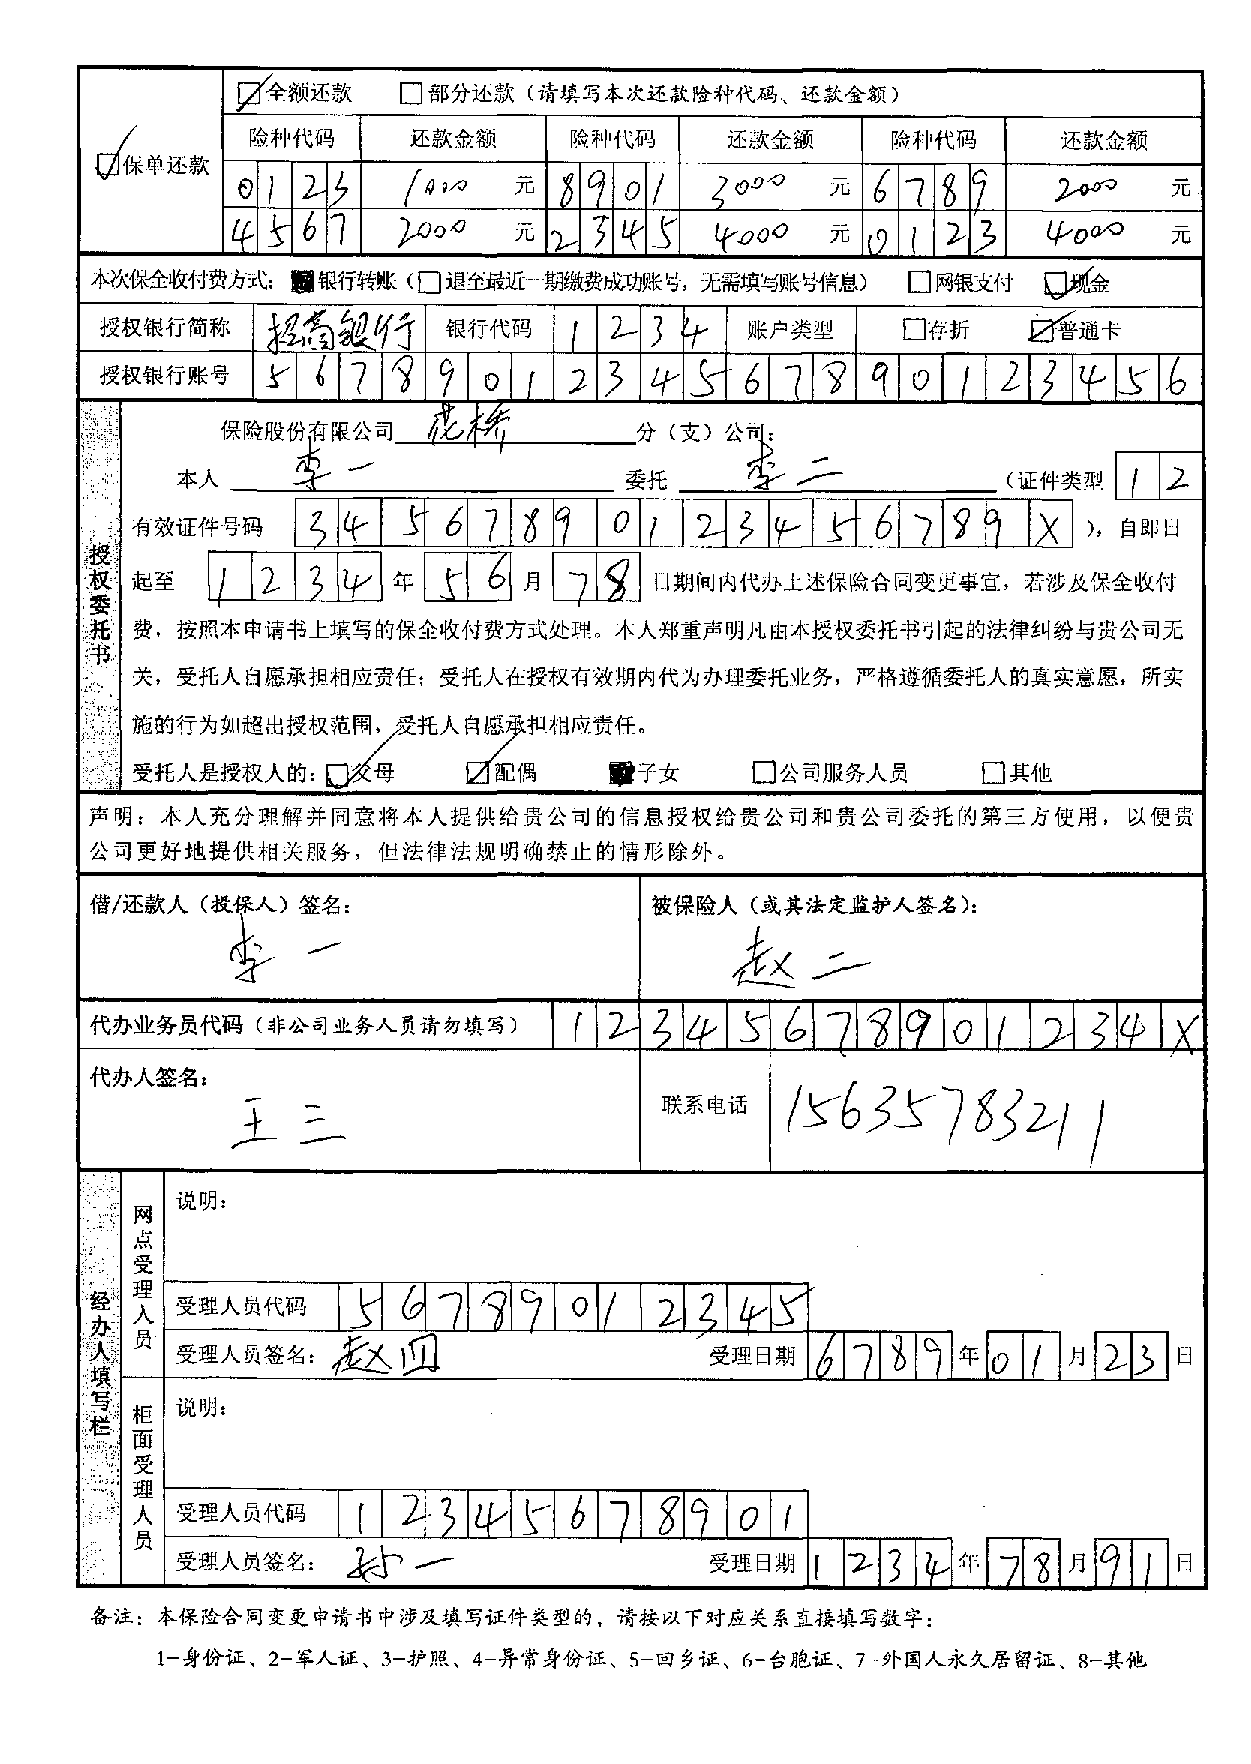 全额还款 部分还款（请填写本次还款险种代码、还款金额）
保单还款
险种代码 还款金额 险种代码 还款金额 险种代码 还款金额
0123 1000 元 8901 3000 元 6789 2000 元
4567 2000 元 2345 4000 元 0123 4000 元
本次保全收付费方式：银行转账（退至最近一期缴费成功账号，无需填写账号信息） 网银支付 现金
授权银行简称 招商银行 银行代码 1234 账户类型 存折 普通卡
授权银行账号 5678901234567890123456
授权委托书
保险股份有限公司 花桥 分（支）公司：
本人 李一 委托 李二 （证件类型 12
有效证件号码 34567890123456789X ），自即日
起至 1234 年 56 月 78 日期间内代办上述保险合同变更事宜，若涉及保全收付
费，按照本申请书上填写的保全收付费方式处理。本人郑重声明凡由本授权委托书引起的法律纠纷与贵公司无
关，受托人自愿承担相应责任；受托人在授权有效期内代为办理委托业务，严格遵循委托人的真实意愿，所实
施的行为如超出授权范围，受托人自愿承担相应责任。
受托人是授权人的： 父母 配偶 子女 公司服务人员 其他
声明：本人充分理解并同意将本人提供给贵公司的信息授权给贵公司和贵公司委托的第三方使用，以便贵
公司更好地提供相关服务，但法律法规明确禁止的情形除外。
借/还款人（投保人）签名： 被保险人（或其法定监护人签名）：
李一 赵二
代办业务员代码（非公司业务人员请勿填写） 12345678901234X
代办人签名：
王三 联系电话 15635783211
经办人填写栏
网点受理人员
说明：
受理人员代码 56789012345
受理人员签名：赵四 受理日期 6789 年 01 月 23 日
柜面受理人员
说明：
受理人员代码 12345678901
受理人员签名： 孙一 受理日期 1234 年 78 月 91 日
备注：本保险合同变更申请书中涉及填写证件类型的，请按以下对应关系直接填写数字：
1-身份证、2-军人证、3-护照、4-异常身份证、5-回乡证、6-台胞证、7-外国人永久居留证、8-其他